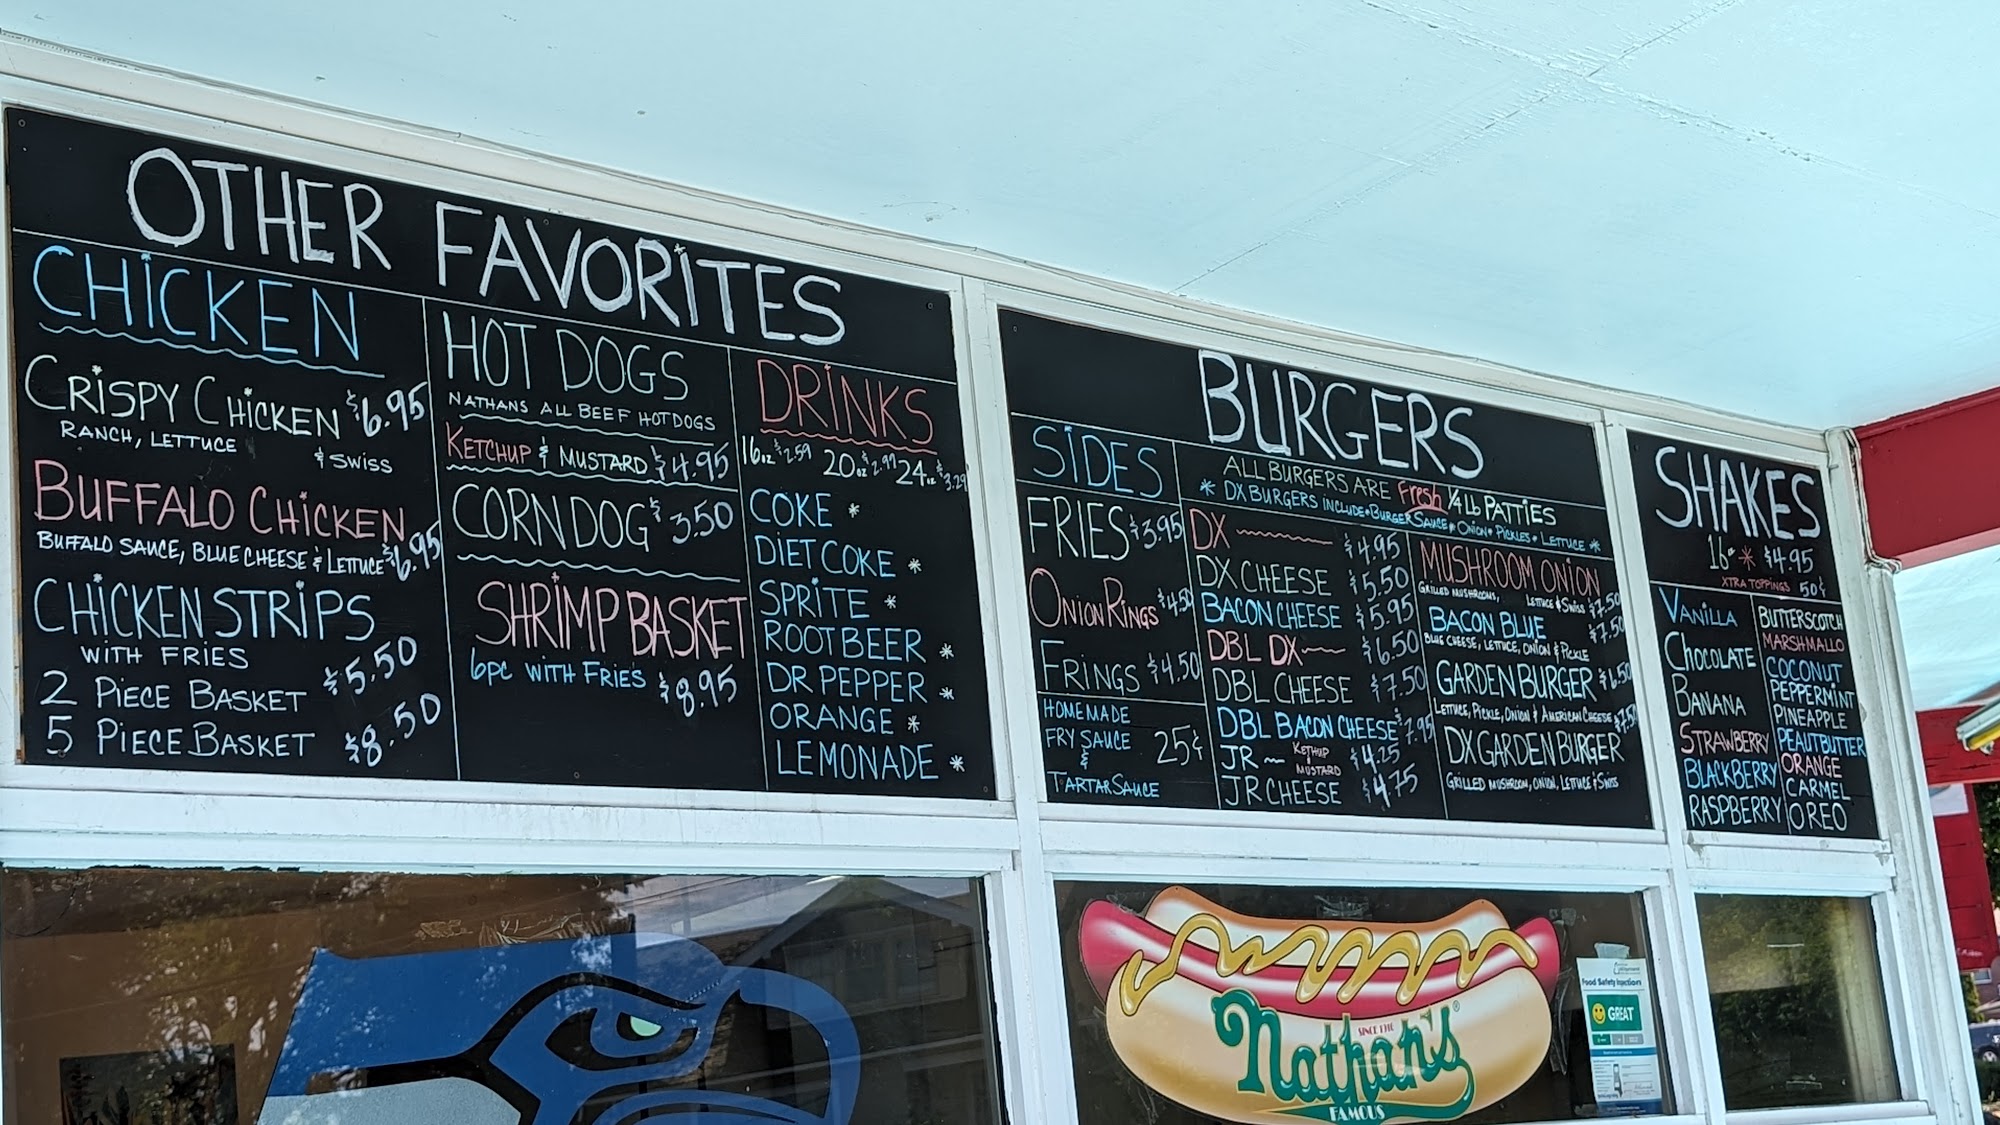 OTHER FAVORITES
CHICKEN
CRISPY CHICKEN $6.95
RANCH, LETTUCE & SWISS
BUFFALO CHICKEN
BUFFALO SAUCE, BLUE CHEESE & LETTUCE $6.95
CHICKEN STRIPS
WITH FRIES
2 PIECE BASKET $5.50
5 PIECE BASKET $8.50
HOT DOGS
NATHANS ALL BEEF HOTDOGS
KETCHUP & MUSTARD $4.95
CORNDOG $3.50
SHRIMP BASKET
6pc WITH FRIES $8.95
DRINKS
16oz $2.59 20oz $2.99 24oz $3.29
COKE *
DIET COKE *
SPRITE *
ROOTBEER *
DR PEPPER *
ORANGE *
LEMONADE *
BURGERS
SIDES
FRIES $3.95
ONION RINGS $4.50
FRINGS $4.50
HOMEMADE
FRY SAUCE
&
TARTAR SAUCE
25¢
ALL BURGERS ARE Fresh 1/4 Lb PATTIES
* DX BURGERS INCLUDE • BURGER SAUCE • ONION • PICKLES • LETTUCE *
DX $4.95
DX CHEESE $5.50
BACON CHEESE $5.95
DBL DX $6.50
DBL CHEESE $7.50
DBL BACON CHEESE $7.95
JR KETHUP & MUSTARD $4.25
JR CHEESE $4.75
MUSHROOM ONION
GRILLED MUSHROOMS, LETTUCE & SWISS $7.50
BACON BLUE $7.50
BLUE CHEESE, LETTUCE, ONION & PICKLE
GARDEN BURGER $6.50
LETTUCE, PICKLE, ONION & AMERICAN CHEESE
DX GARDEN BURGER $7.50
GRILLED MUSHROOM, ONION, LETTUCE & SWISS
SHAKES
16oz * $4.95
XTRA TOPPINGS 50¢
VANILLA
CHOCOLATE
BANANA
STRAWBERRY
BLACKBERRY
RASPBERRY
BUTTERSCOTCH
MARSHMALLO
COCONUT
PEPPERMINT
PINEAPPLE
PEAUTBUTTER
ORANGE
CARMEL
OREO
SINCE 1916
Nathan's
FAMOUS
Food Safety Inspection
GREAT